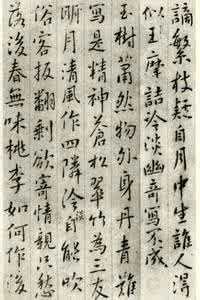 謫繁枝疑自月中生誰人得
似王摩詰冷淡幽奇寫不成
玉樹蕭然物外身丹青難
寫是精神蒼松翠竹為三友
明月清風作四隣冷淡自能
俗客扳翻剩欲寄情親只愁
落後春無味桃李如何作後